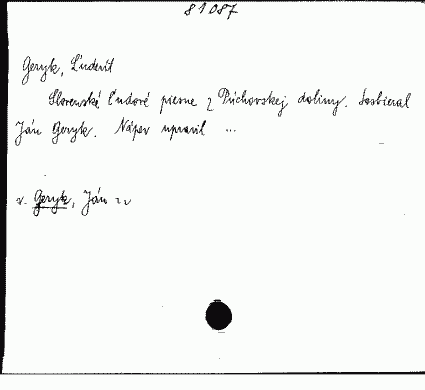 81087
Geryk, Ľudevít
Slovenské ľudové piesne z Púchovskej doliny. Sosbieral
Ján Geryk. Nápev upravil ...
v. Geryk, Ján